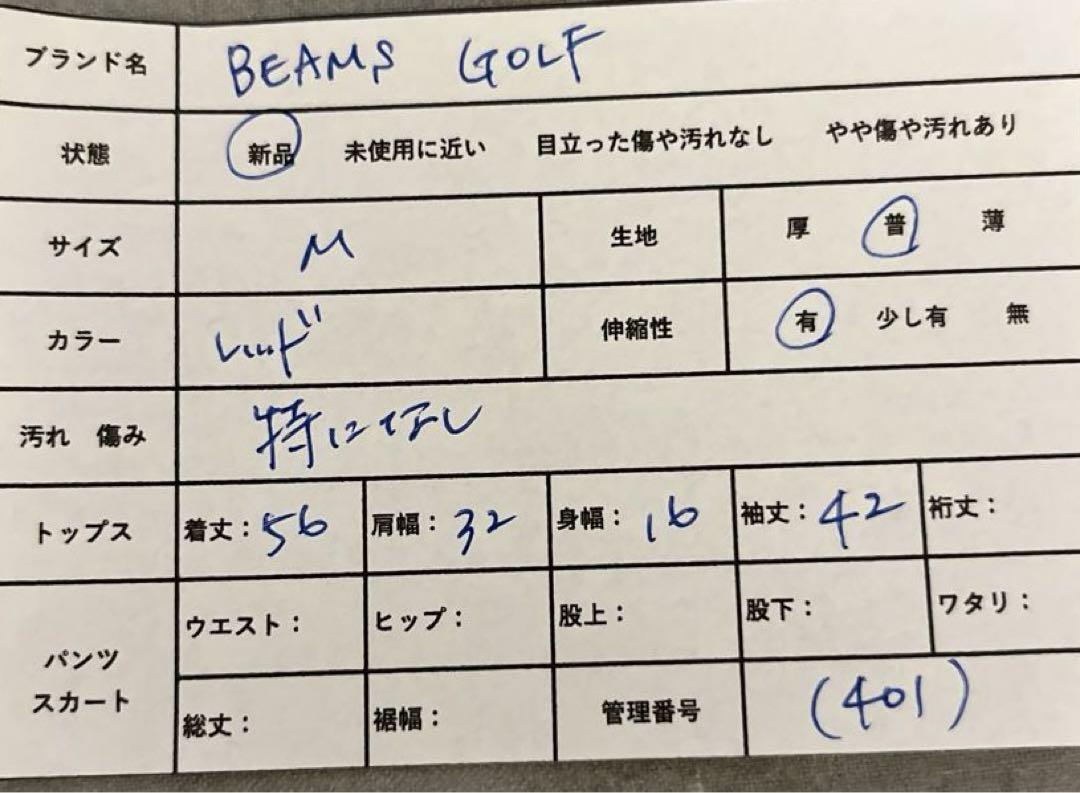 ブランド名 BEAMS GOLF
状態 新品 未使用に近い 目立った傷や汚れなし やや傷や汚れあり
サイズ M 生地 厚 普 薄
カラー レッド 伸縮性 有 少し有 無
汚れ 傷み 特になし
トップス 着丈：56 肩幅：32 身幅：16 袖丈：42 裄丈：
パンツ
スカート
ウエスト： ヒップ： 股上： 股下： ワタリ：
総丈： 裾幅： 管理番号 (401)